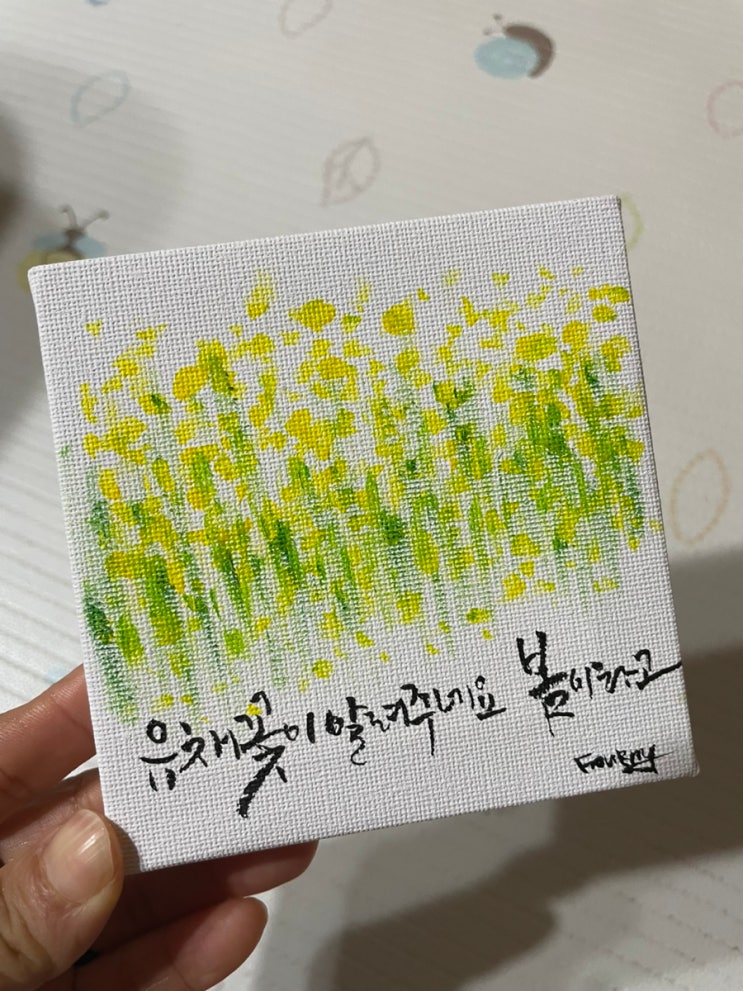 유채꽃이 알려주네요 봄이라고